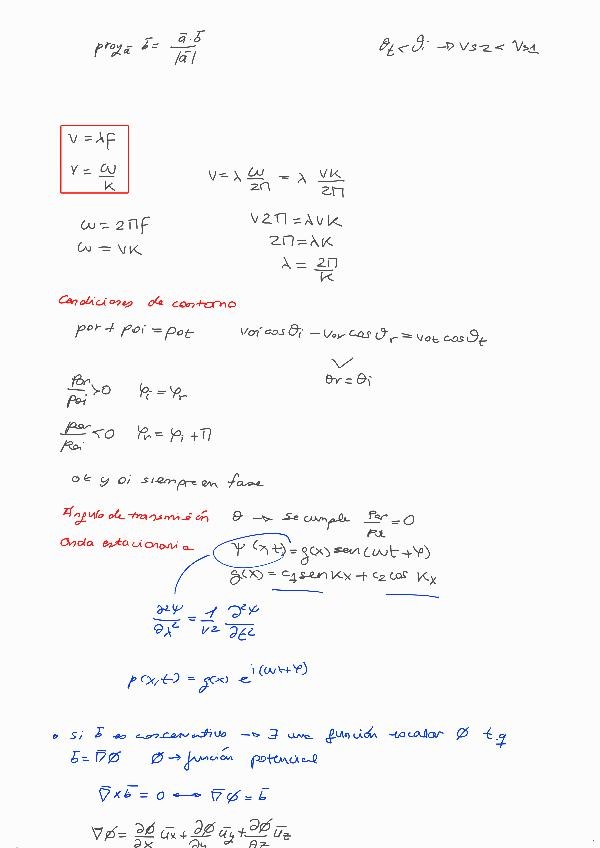 proy_ā b̄ = ā·b̄ / |ā|
θt < θi → Vs2 < Vs1
V = λf
V = ω/K
V = λ ω/2Π = λ VK/2Π
ω = 2Πf
V2Π = λVK
ω = VK
2Π = λK
λ = 2Π/K
Condiciones de contorno
por + poi = pot
voi cosθi − vor cosθr = vot cosθt
θr = θi
por/poi > 0 φi = φr
por/poi < 0 φr = φi + Π
ot y oi siempre en fase
Ángulo de transmisión θ → se cumple = 0
Onda estacionaria ψ(x,t) = g(x) sen(ωt+φ)
g(x) = c1 sen Kx + c2 cos Kx
∂²ψ/∂x² = 1/v² ∂²ψ/∂t²
p(x,t) = g(x) e^i(ωt+φ)
• si b̄ es conservativo → ∃ una función escalar φ t.q
b̄ = ∇̄φ φ → función potencial
∇̄ x b̄ = 0 ↔ ∇̄φ = b̄
∇φ = ∂φ/∂x ūx + ∂φ/∂y ūy + ∂φ/∂z ūz